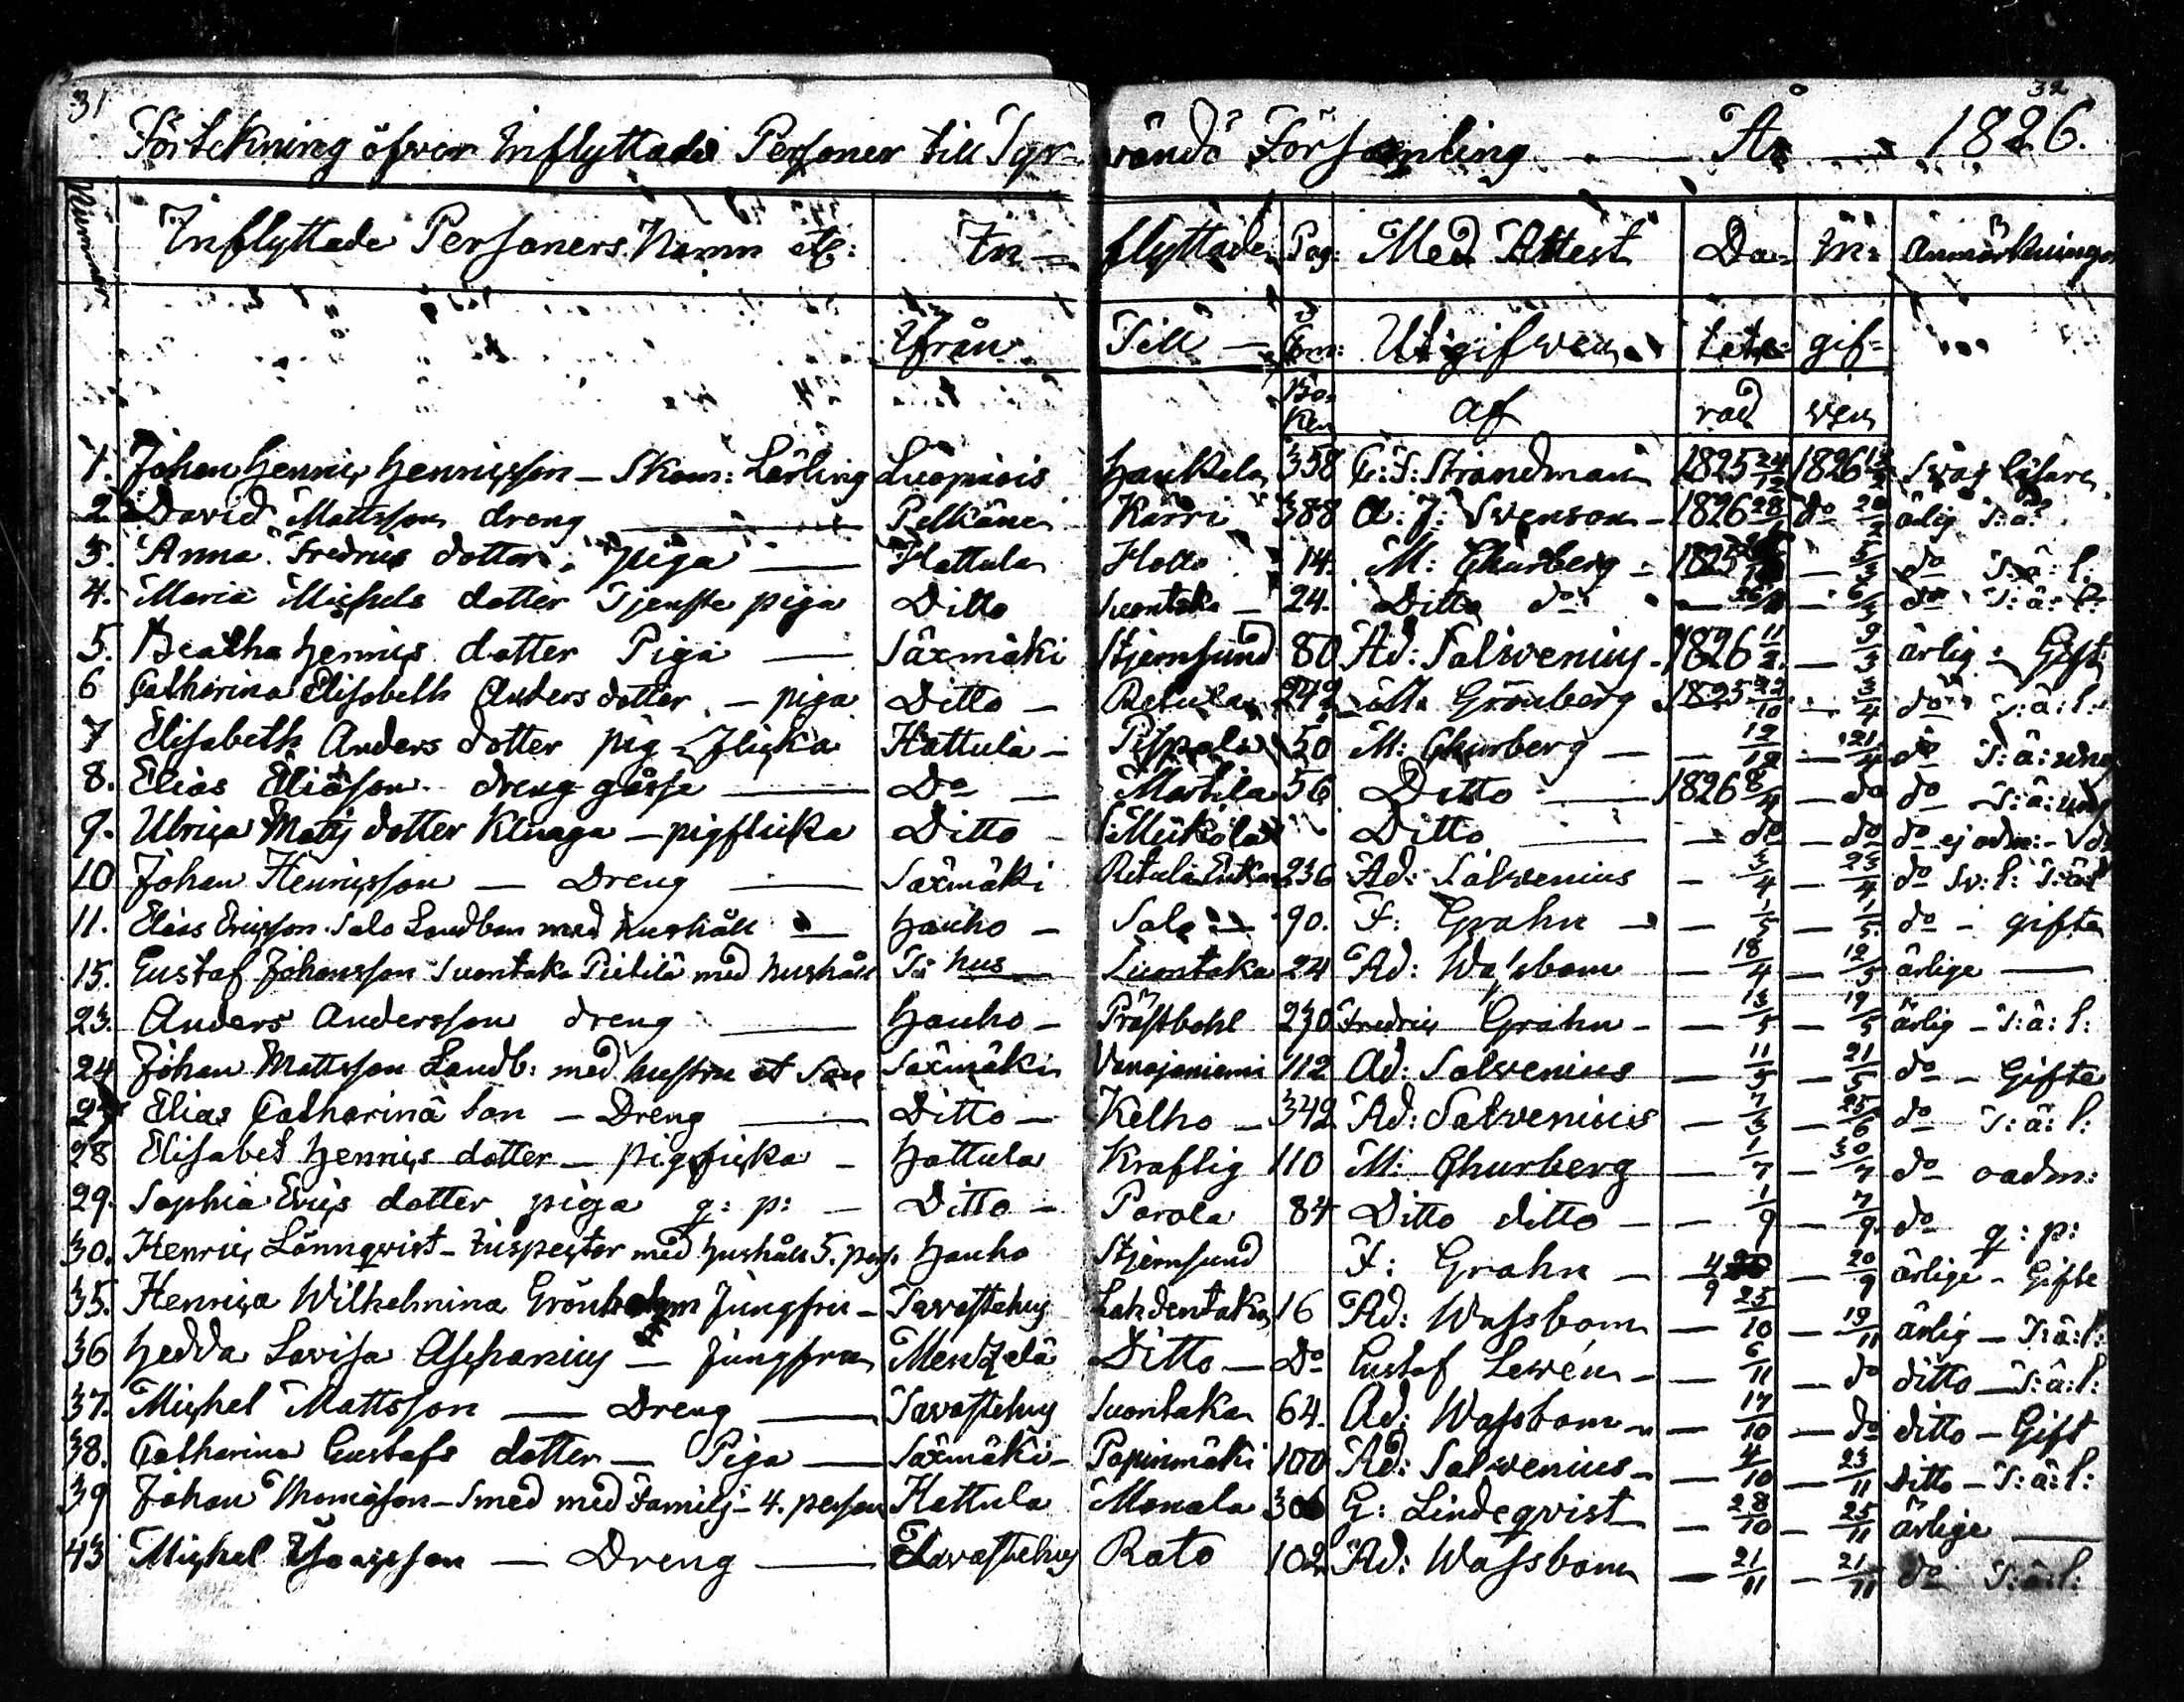 31 32
Förtekning öfver Inflyttade Personer till Tyrvändö Församling — År — 1826.
Nummer Inflyttade Personers Namn etc: In= flyttade Pag: Med Attest Da= In= Anmärkningar
Ifrån Till — i Com: Utgifven tete= gif=
Bo= af rad ven
ken
1. Johan Henrics Henricsson — Skom: Lärling Luopiois Haukela 358 C: J: Strandman 1825 24/12 1826 Svag läsare
2. David Mattsson dreng — Pelkäne Kärri 388 A: J: Svenson — 1826 28/ do 20/ ärlig T: ä:
3. Anna Fredrics dotter piga — Hattula Hotto 14. M: Churberg — 1825 — 5/3 do T: ä: l:
4. Maria Michels dotter Tjenste piga Ditto Suontaka — 24. Ditto do — 26/ — 6/ do T: ä: l:
5. Beatha Henrics dotter Piga — Säxmäki Stjernsund 80 Ad: Salvenius — 1826 11/2 — 9/3 ärlig — Gift
6 Catharina Elisabeth Anders dotter — piga Ditto — Retula 242 M: Grönberg 1825 22/10 — 3/4 do T: ä: l:
7 Elisabeth Anders dotter pig-flicka Hattula — Pispala 50 M: Churberg — — 12/12 — 21/4 do T: ä: ung
8. Elias Eliason dreng gåsse — Do — Martila 56 Ditto — 1826 8/4 — do do T: ä: ung
9. Ulrica Mats dotter Kluaga — pigflicka Ditto — Mickola Ditto — — do — do do ej adm:
10 Johan Henricsson — Dreng — Säxmäki Retula 236 Ad: Salvenius — 3/4 — 23/4 do Sv: l: T: ä:
11. Elias Ericsson Salo Landbon med hushåll — Hauho — Salo — 90. F: Grahn — — 1/5 — 1/5 do — gifta
15. Gustaf Johansson Suontaka Pietilä med hushåll T: hus Suontaka 24 Ad: Wassbom — 18/4 — 12/5 ärlige —
23. Anders Andersson dreng — Hauho — Prästbohl 230 Fredric Grahn — — 13/5 — 19/5 ärlig — T: ä: l:
24 Johan Mattsson Landb: med hustru et Son Säxmäki Vanajaniemi 112 Ad: Salvenius — 11/5 — 21/5 do — Gifta
27 Elias Catharinä Son — Dreng — Ditto — Kelho — 342 Ad: Salvenius — 7/3 — 25/6 do T: ä: l:
28 Elisabet Henrics dotter — pigflicka — Hattula Kraftig 110 M: Churberg — 1/7 — 30/7 do oadm:
29. Sophia Erics dotter piga q: p: — Ditto — Parola 84 Ditto ditto — — 1/9 — 7/9 do q: p:
30. Henric Lönnqvist — Inspector med hushåll 5. pers. Hauho Stjernsund F: Grahn — 4/9 — 20/9 ärlige — Gifte
35. Henrica Wilhelmina Grönholm Jungfru — Tavastehus Lahdentaka 16 Ad: Wassbom — 25/10 — 19/11 ärlig — T: ä: l:
36 Hedda Lovisa Aschanius — Jungfru Mentzelä Ditto — Do Gustaf Lewén — — 6/11 — do ditto — T: ä: l:
37. Michel Mattsson — Dreng — Tavastehus Suontaka 64. Ad: Wassbom — — 17/10 — do ditto — Gift
38. Catharina Gustafs dotter — Piga — Säxmäki — Papinmäki 100 Ad: Salvenius — — 4/10 — 23/11 ditto — T: ä: l:
39 Johan Thomasson — Smed med Familj — 4. person Hattula Monala 306 G: Lindeqvist — 28/10 — 25/11 ärlige —
43 Michel Isacsson — Dreng — Tavastehus Rato 102 Ad: Wassbom — 21/11 — 21/11 do T: ä: l: